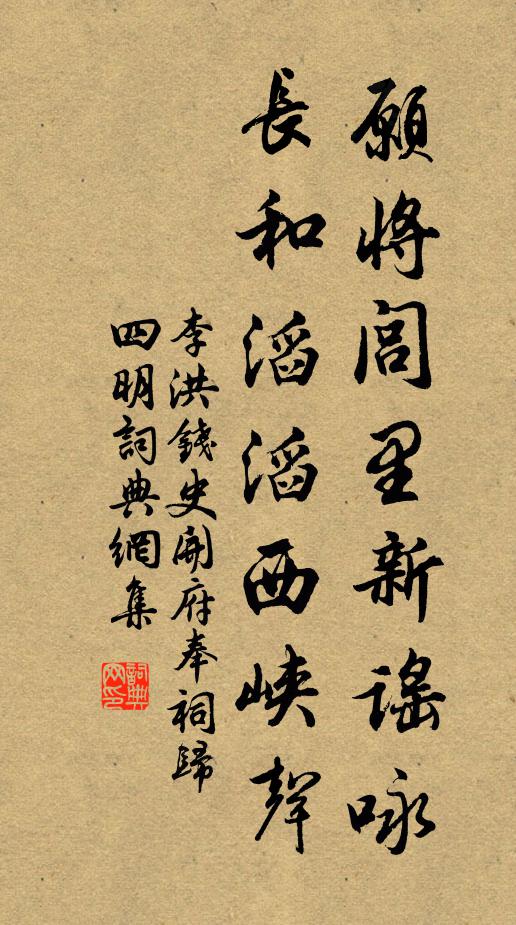 願將閭里新謠咏
長和滔滔西峽聲
李洪錢史開府奉祠歸
四明詞典網集
詞典網印